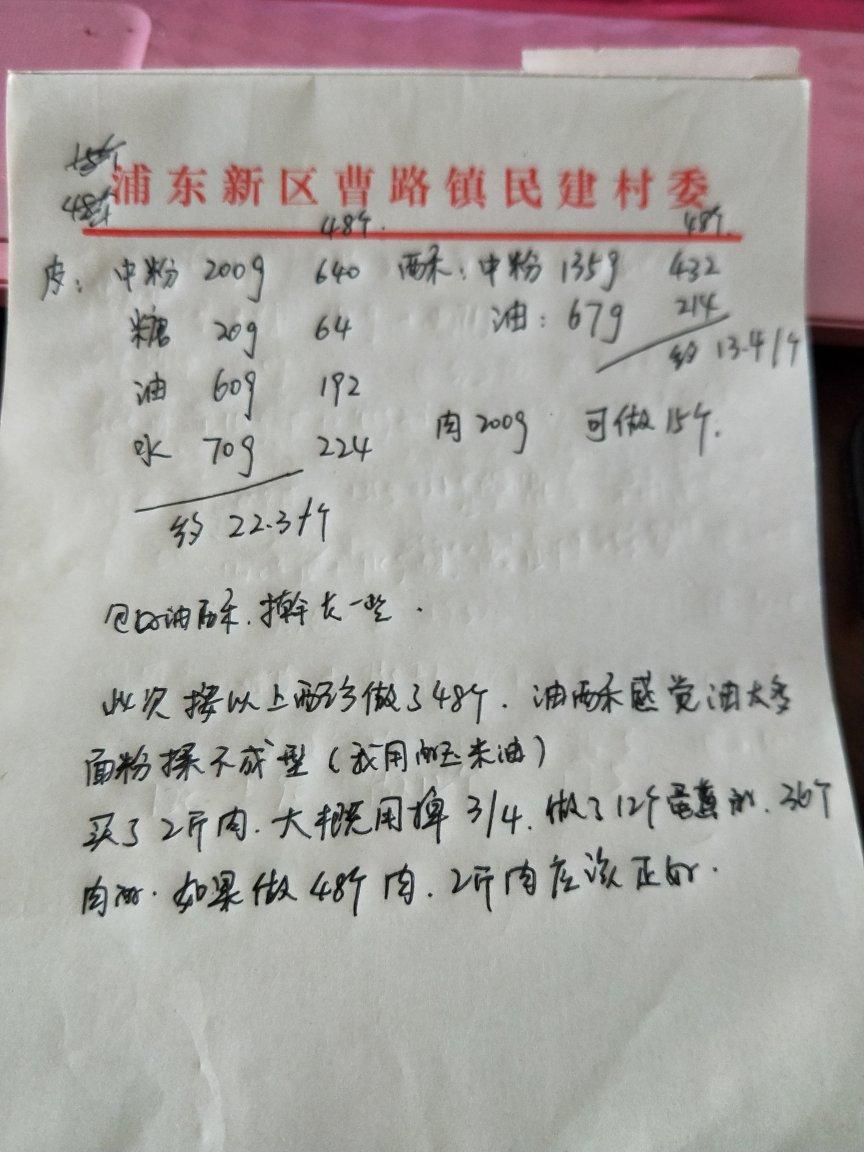 15个
浦东新区曹路镇民建村委
48个
48个.
48个.
皮: 中粉 200g 640 酥: 中粉 135g 432
糖 20g 64 油: 67g 214
约 13.4/个
油 60g 192
肉 200g 可做 15个.
水 70g 224
约 22.3/个
包好油酥, 擀长一些.
此次按以上配分做了48个. 油酥感觉油太多
面粉揉不成型(我用的玉米油)
买了2斤肉. 大概用掉3/4. 做了12个蛋黄的. 36个
肉的. 如果做48个肉. 2斤肉应该正好.